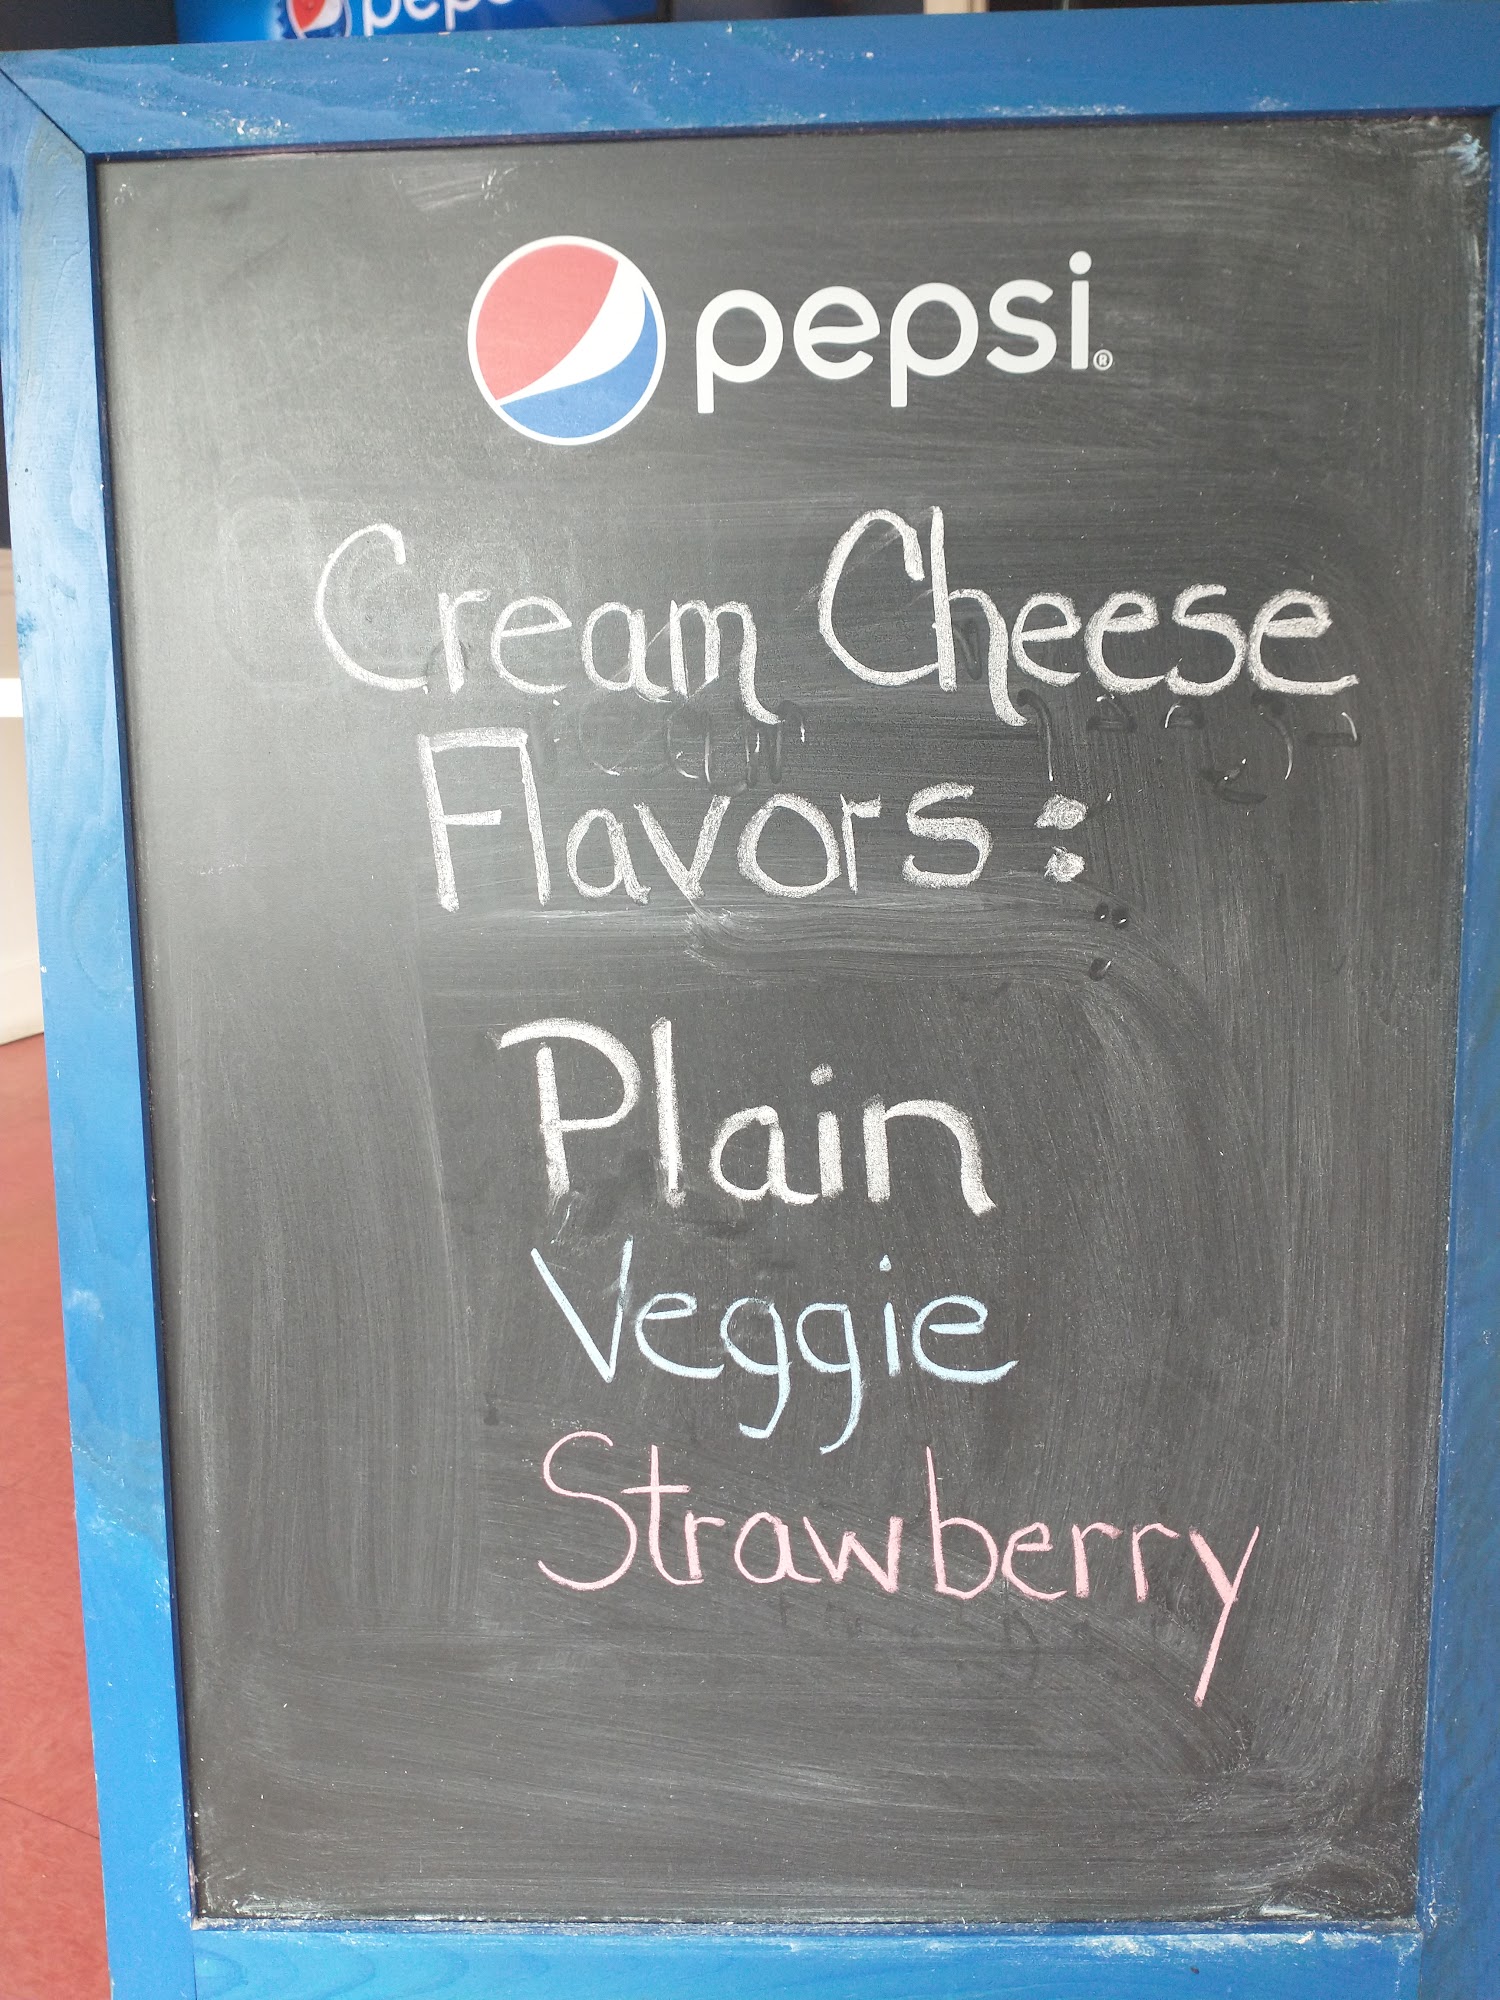 pepsi
pepsi®
Cream Cheese
Flavors:
Plain
Veggie
Strawberry